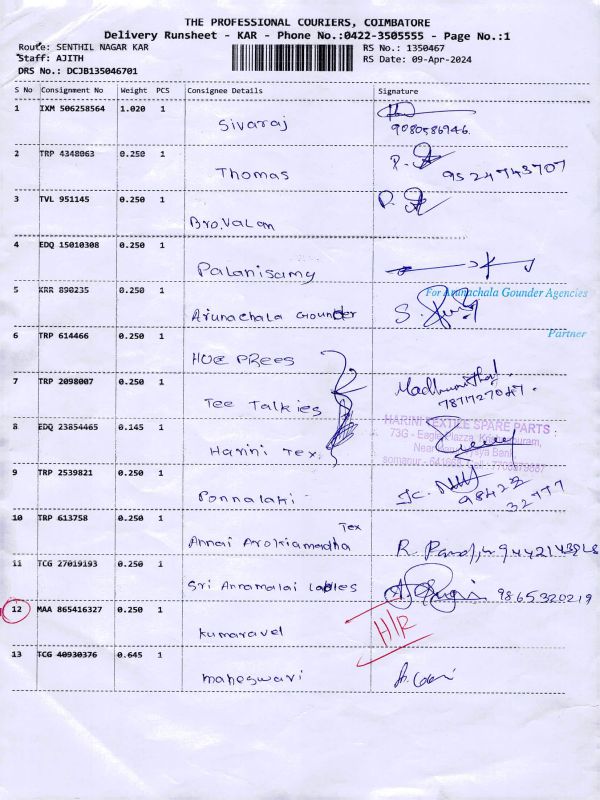 THE PROFESSIONAL COURIERS, COIMBATORE
Delivery Runsheet - KAR - Phone No.:0422-3505555 - Page No.:1
Route: SENTHIL NAGAR KAR
RS No.: 1350467
Staff: AJITH
RS Date: 09-Apr-2024
DRS No.: DCJB135046701
S No Consignment No Weight PCS Consignee Details Signature
1 IXM 506258564 1.020 1
Sivaraj 9080586946.
2 TRP 4348063 0.250 1
Thomas 9524743707
3 TVL 951145 0.250 1
Bro.Valan
4 EDQ 15010308 0.250 1
Palanisamy
5 KRR 890235 0.250 1 For Arunachala Gounder Agencies
Arunachala Gounder
6 TRP 614466 0.250 1 Partner
HOE PREES
7 TRP 2098007 0.250 1
Tee Talkies
8 EDQ 23854465 0.145 1 HARINI TEXTILE SPARE PARTS
Harini Tex.
9 TRP 2539821 0.250 1
Ponnalaki 98422
32777
10 TRP 613758 0.250 1 Tex
Annai Arokiamadha R.
11 TCG 27019193 0.250 1
Sri Annamalai Lables 9865320219
12 MAA 865416327 0.250 1
Kumaravel H/R
13 TCG 40930376 0.645 1
maheswari